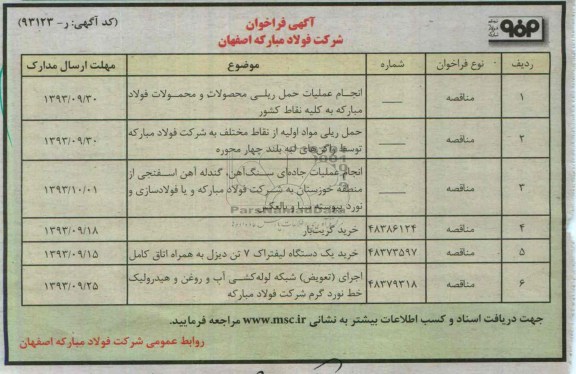 آگهی فراخوان
شرکت فولاد مبارکه اصفهان
(کد آگهی: ر- ۹۳۱۲۳)
ردیف نوع فراخوان شماره موضوع مهلت ارسال مدارک
۱ مناقصه ___ انجام عملیات حمل ریلی محصولات و محمولات فولاد ۱۳۹۳/۰۹/۳۰
مبارکه به کلیه نقاط کشور
۲ مناقصه ___ حمل ریلی مواد اولیه از نقاط مختلف به شرکت فولاد مبارکه ۱۳۹۳/۰۹/۳۰
توسط واگن‌های لبه بلند چهار محوره
۳ مناقصه ___ انجام عملیات جاده‌ای سنگ‌آهن، گندله آهن اسفنجی از ۱۳۹۳/۱۰/۰۱
منطقه خوزستان به شرکت فولاد مبارکه و یا فولادسازی و
نورد پیوسته سبا و بالعکس
۴ مناقصه ۴۸۳۸۶۱۲۴ خرید گریت‌بار ۱۳۹۳/۰۹/۱۸
۵ مناقصه ۴۸۳۷۳۵۹۷ خرید یک دستگاه لیفتراک ۷ تن دیزل به همراه اتاق کامل ۱۳۹۳/۰۹/۱۵
۶ مناقصه ۴۸۳۷۹۳۱۸ اجرای (تعویض) شبکه لوله‌کشی آب و روغن و هیدرولیک ۱۳۹۳/۰۹/۲۵
خط نورد گرم شرکت فولاد مبارکه
جهت دریافت اسناد و کسب اطلاعات بیشتر به نشانی www.msc.ir مراجعه فرمایید.
روابط عمومی شرکت فولاد مبارکه اصفهان